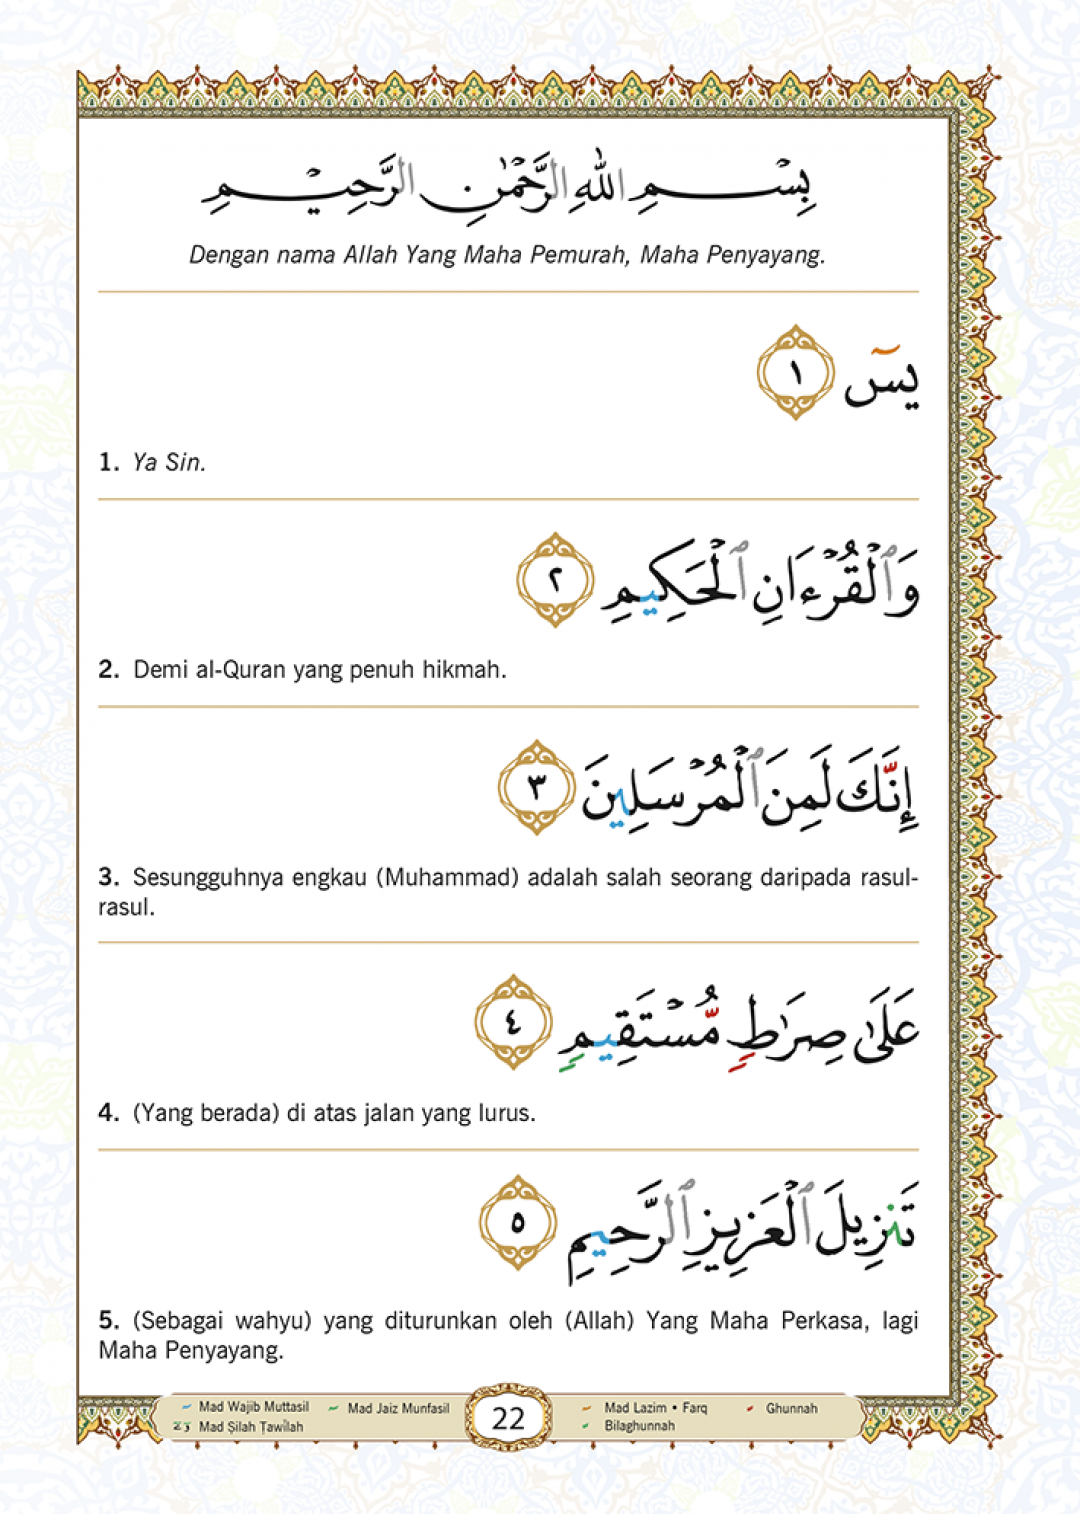 بِسْمِ اللهِ الرَّحْمٰنِ الرَّحِيْمِ
Dengan nama Allah Yang Maha Pemurah, Maha Penyayang.
يسٓ ١
1. Ya Sin.
وَٱلْقُرْءَانِ ٱلْحَكِيمِ ٢
2. Demi al-Quran yang penuh hikmah.
إِنَّكَ لَمِنَ ٱلْمُرْسَلِينَ ٣
3. Sesungguhnya engkau (Muhammad) adalah salah seorang daripada rasul-
rasul.
عَلَىٰ صِرَٰطٍ مُّسْتَقِيمٍ ٤
4. (Yang berada) di atas jalan yang lurus.
تَنزِيلَ ٱلْعَزِيزِ ٱلرَّحِيمِ ٥
5. (Sebagai wahyu) yang diturunkan oleh (Allah) Yang Maha Perkasa, lagi
Maha Penyayang.
Mad Wajib Muttasil Mad Jaiz Munfasil 22 Mad Lazim • Farq Ghunnah
Mad Ṣilah Ṭawîlah Bilaghunnah